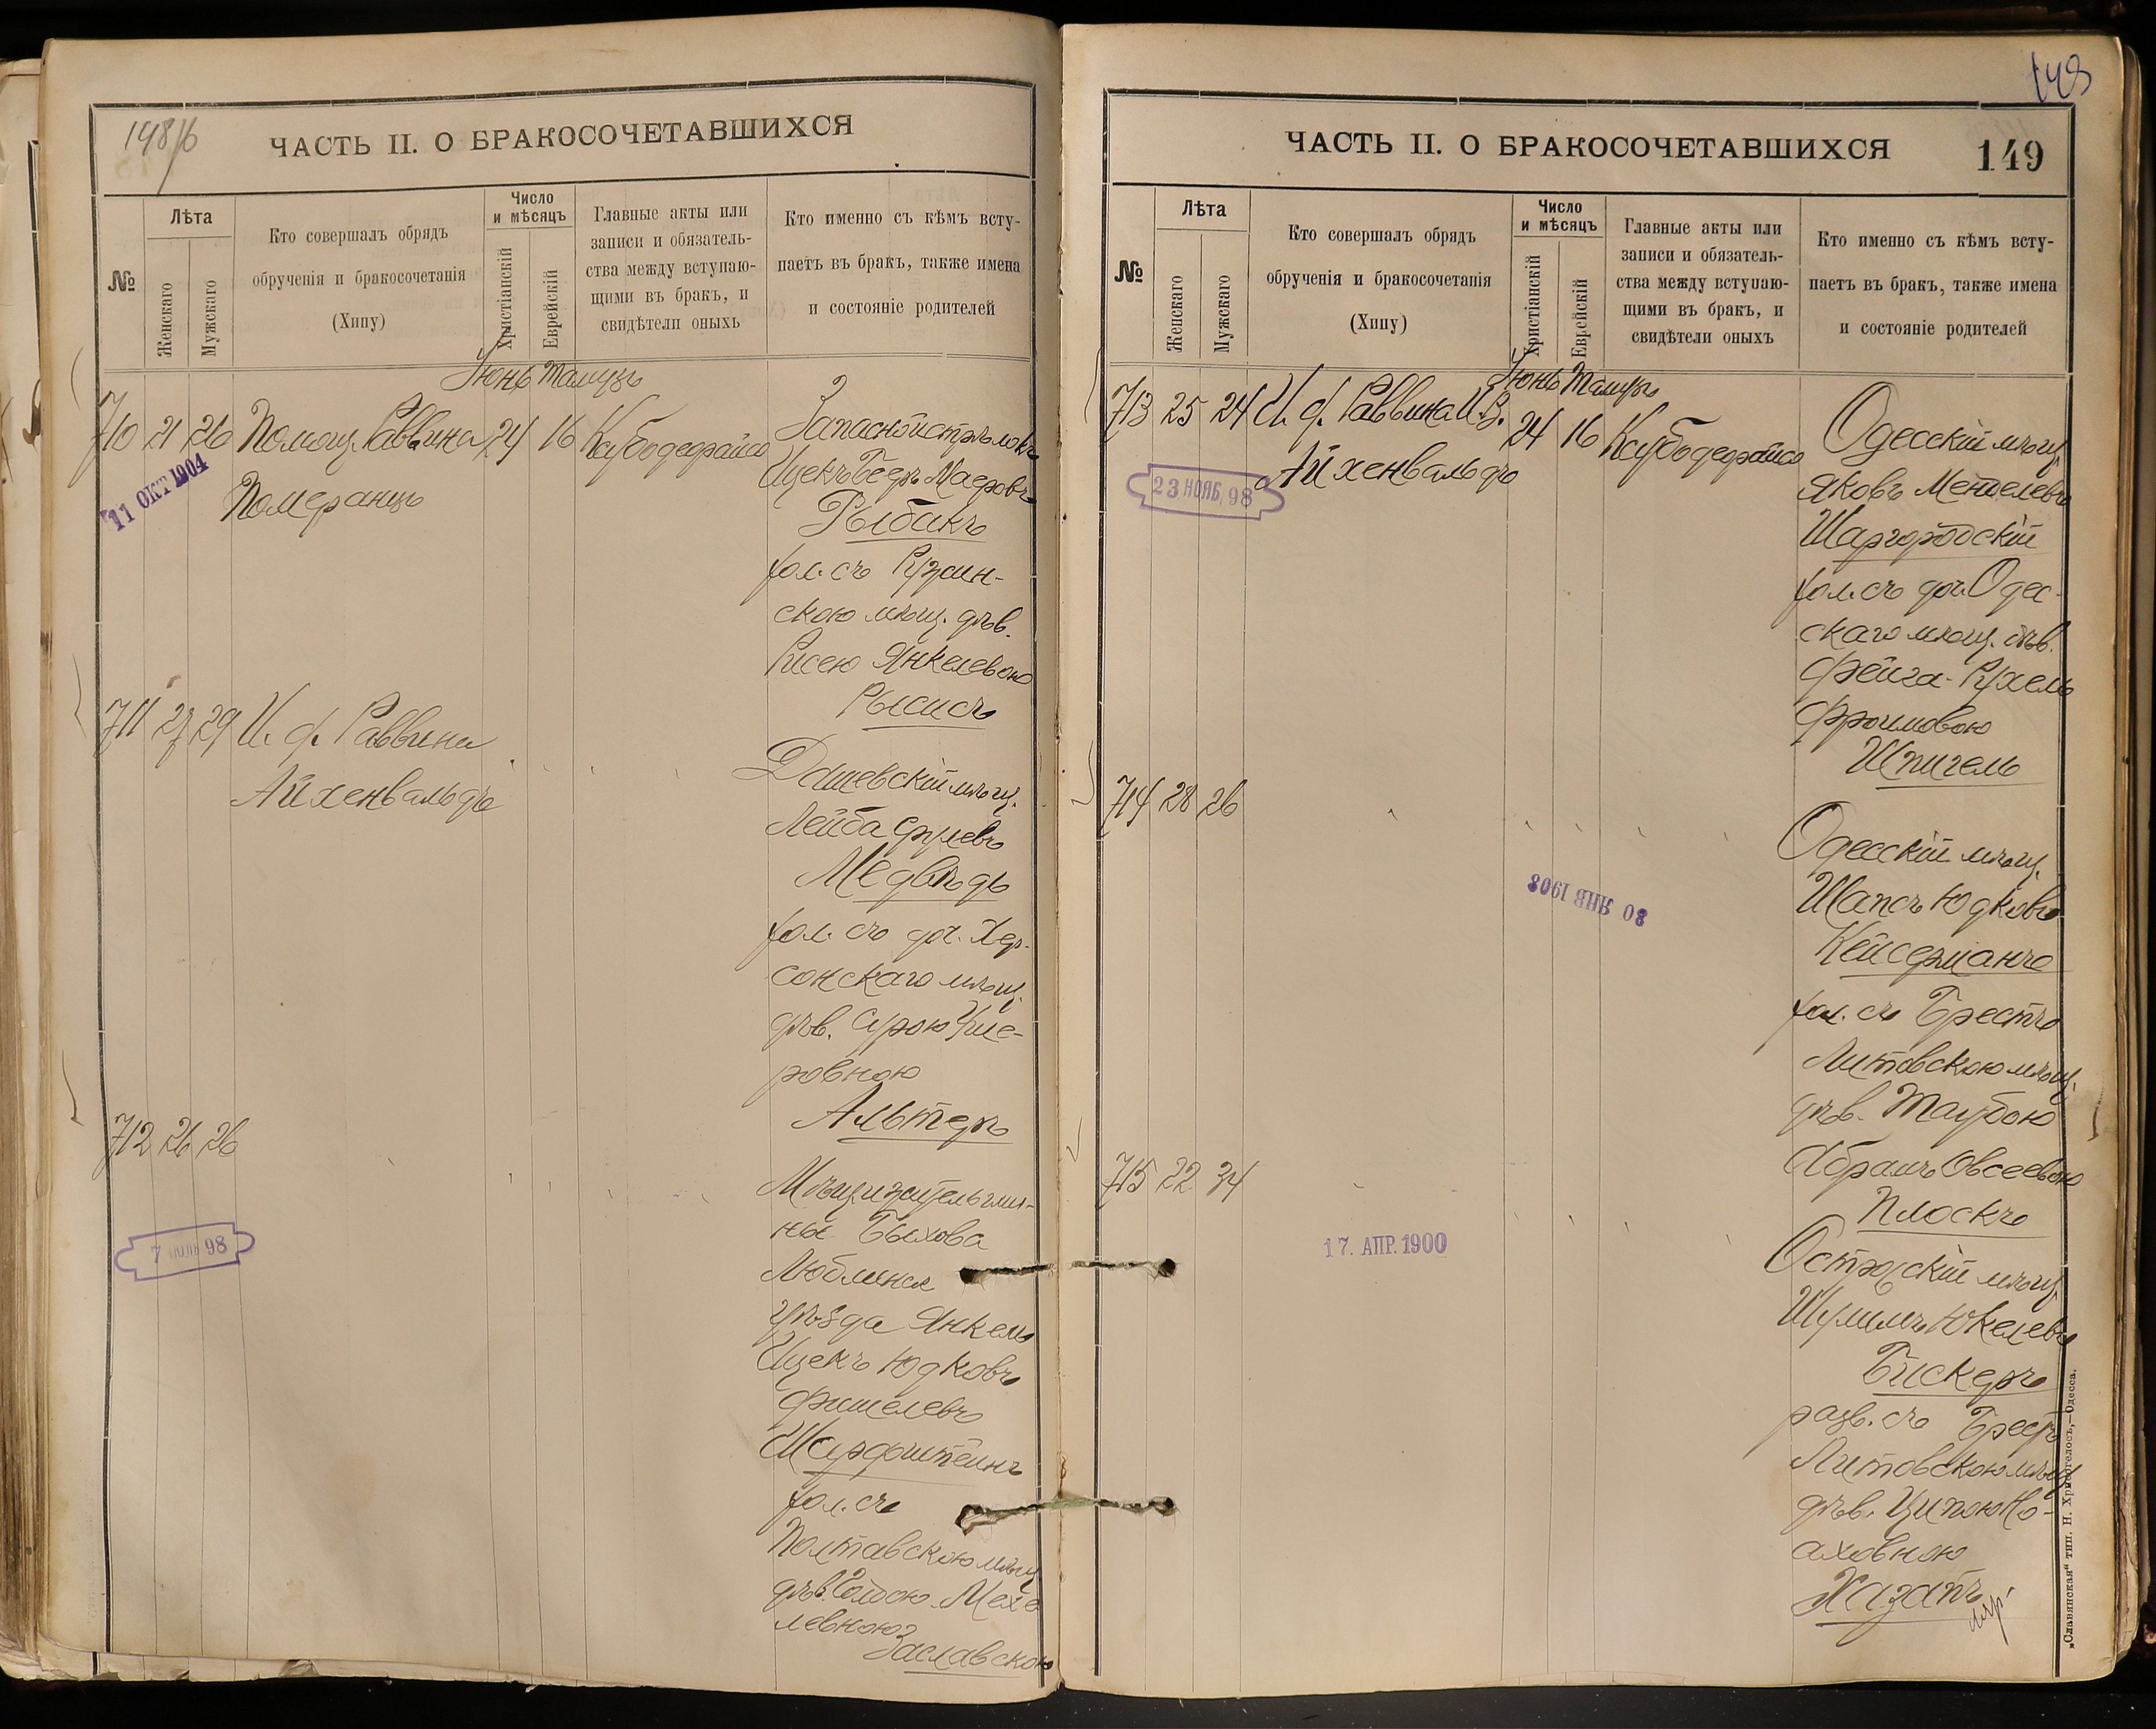 148/б
ЧАСТЬ II. О БРАКОСОЧЕТАВШИХСЯ
№
Лѣта
Женскаго
Мужскаго
Кто совершалъ обрядъ
обрученія и бракосочетанія
(Хипу)
Число
и мѣсяцъ
Христіанскій
Еврейскій
Главные акты или
записи и обязатель-
ства между вступаю-
щими въ бракъ, и
свидѣтели оныхъ
Кто именно съ кѣмъ всту-
паетъ въ бракъ, также имена
и состояніе родителей
Іюнь Тамузъ
710 21 26 Помощ. Раввина 24 16 Ксубо деорайсо
Померанцъ
11 ОКТ 1904
Запасной стрѣлокъ
Ицекъ Беръ Маеровъ
Рыбакъ
хол. съ Рузин-
скою мѣщ. дѣв.
Рисею Янкелевою
Рысисъ
711 27 29 И. ф. Раввина
Айхенвальдъ
Дашевскій мѣщ.
Лейба Срулевъ
Медвѣдь
хол. съ доч. Хер-
сонскаго мѣщ.
дѣв. Сурою Уше-
ровною
Альтеръ
712 26 26
7 98
Мѣщ. жительгми-
ны Быхова
Люблинск
уѣзда Янкель
Ицекъ Юдковъ
Фишелевъ
Шарфштейнъ
хол. съ
Полтавскою мѣщ.
дѣв. Голдою Мехе
левною
Заславскою
149
ЧАСТЬ II. О БРАКОСОЧЕТАВШИХСЯ
149
№
Лѣта
Женскаго
Мужскаго
Кто совершалъ обрядъ
обрученія и бракосочетанія
(Хипу)
Число
и мѣсяцъ
Христіанскій
Еврейскій
Главные акты или
записи и обязатель-
ства между вступаю-
щими въ бракъ, и
свидѣтели оныхъ
Кто именно съ кѣмъ всту-
паетъ въ бракъ, также имена
и состояніе родителей
Іюнь Тамузъ
713 25 24 И. ф. Раввина И. З. 24 16 Ксубо деорайсо
Айхенвальдъ
23 НОЯБ. 98
Одесскій мѣщ.
Яковъ Менделевъ
Шаргородскій
хол. съ доч. Одес-
скаго мѣщ. дѣв.
Фейга-Рухель
Фроимовою
Шпигель
714 28 26
30 ЯНВ 1908
Одесскій мѣщ.
Шапсъ Юдковъ
Кейсерманъ
хол. съ Брестъ
Литовскою мѣщ.
дѣв. Таубою
Абрамъ Овсеевою
Плоскъ
715 22 34
17. АПР. 1900
Острогскій мѣщ.
Шулимъ Юкелевъ
Бискеръ
разв. съ Брестъ
Литовскою мѣщ
дѣв. Ципою Но-
аховною
Хазатъ
„Славянская" тип. Н. Хрисогелосъ,—Одесса.